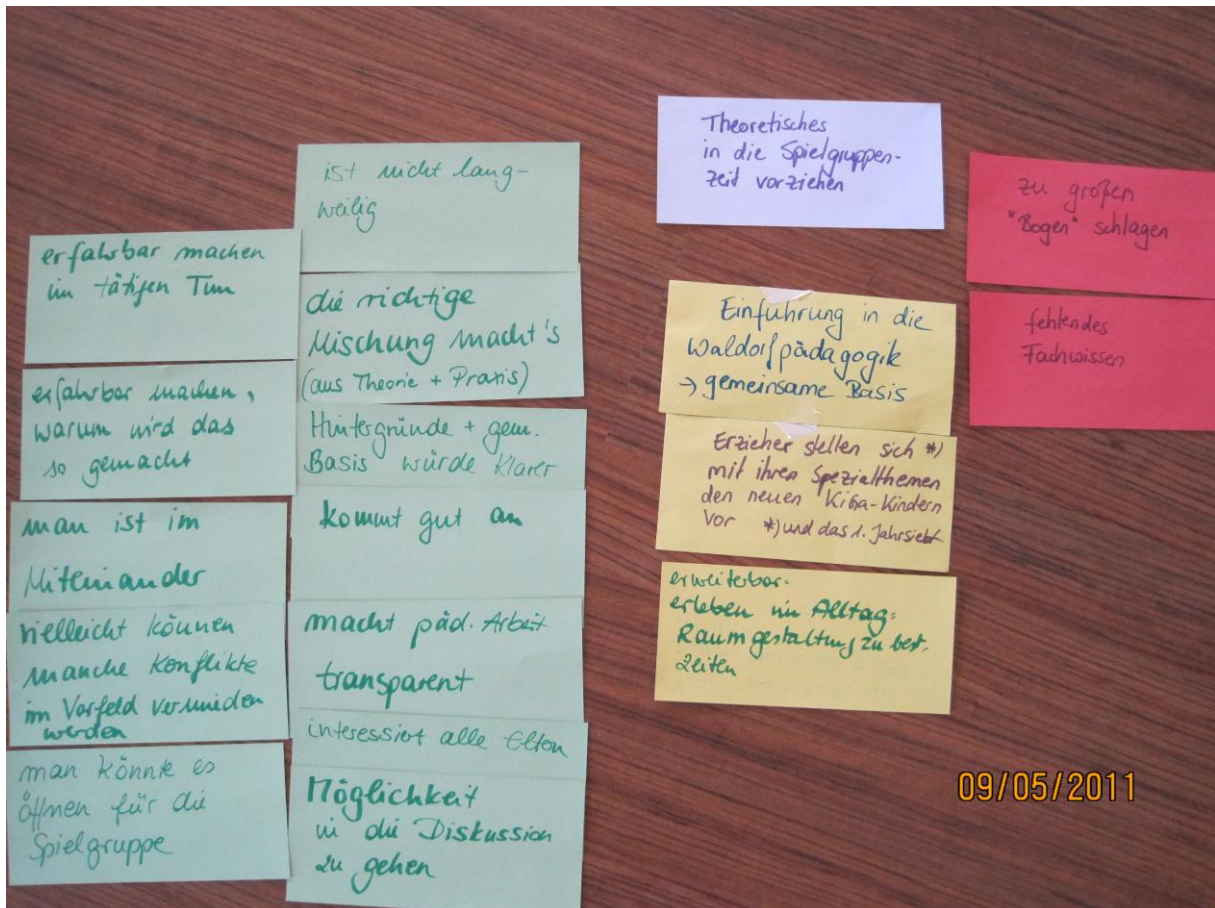 erfahrbar machen
im tätigen Tun
erfahrbar machen,
warum wird das
so gemacht
man ist im
Miteinander
vielleicht können
manche Konflikte
im Vorfeld vermieden
werden
man könnte es
öffnen für die
Spielgruppe
ist nicht lang-
weilig
die richtige
Mischung macht's
(aus Theorie + Praxis)
Hintergründe + gem.
Basis würde klarer
kommt gut an
macht päd. Arbeit
transparent
interessiert alle Eltern
Möglichkeit
in die Diskussion
zu gehen
Theoretisches
in die Spielgruppen-
zeit vorziehen
Einführung in die
Waldorfpädagogik
→ gemeinsame Basis
Erzieher stellen sich *)
mit ihren Spezialthemen
den neuen Kiga-Kindern
vor *) und das 1. Jahrsiebt
erweiterbar:
erleben im Alltag:
Raumgestaltung zu best.
Zeiten
zu großen
"Bogen" schlagen
fehlendes
Fachwissen
09/05/2011